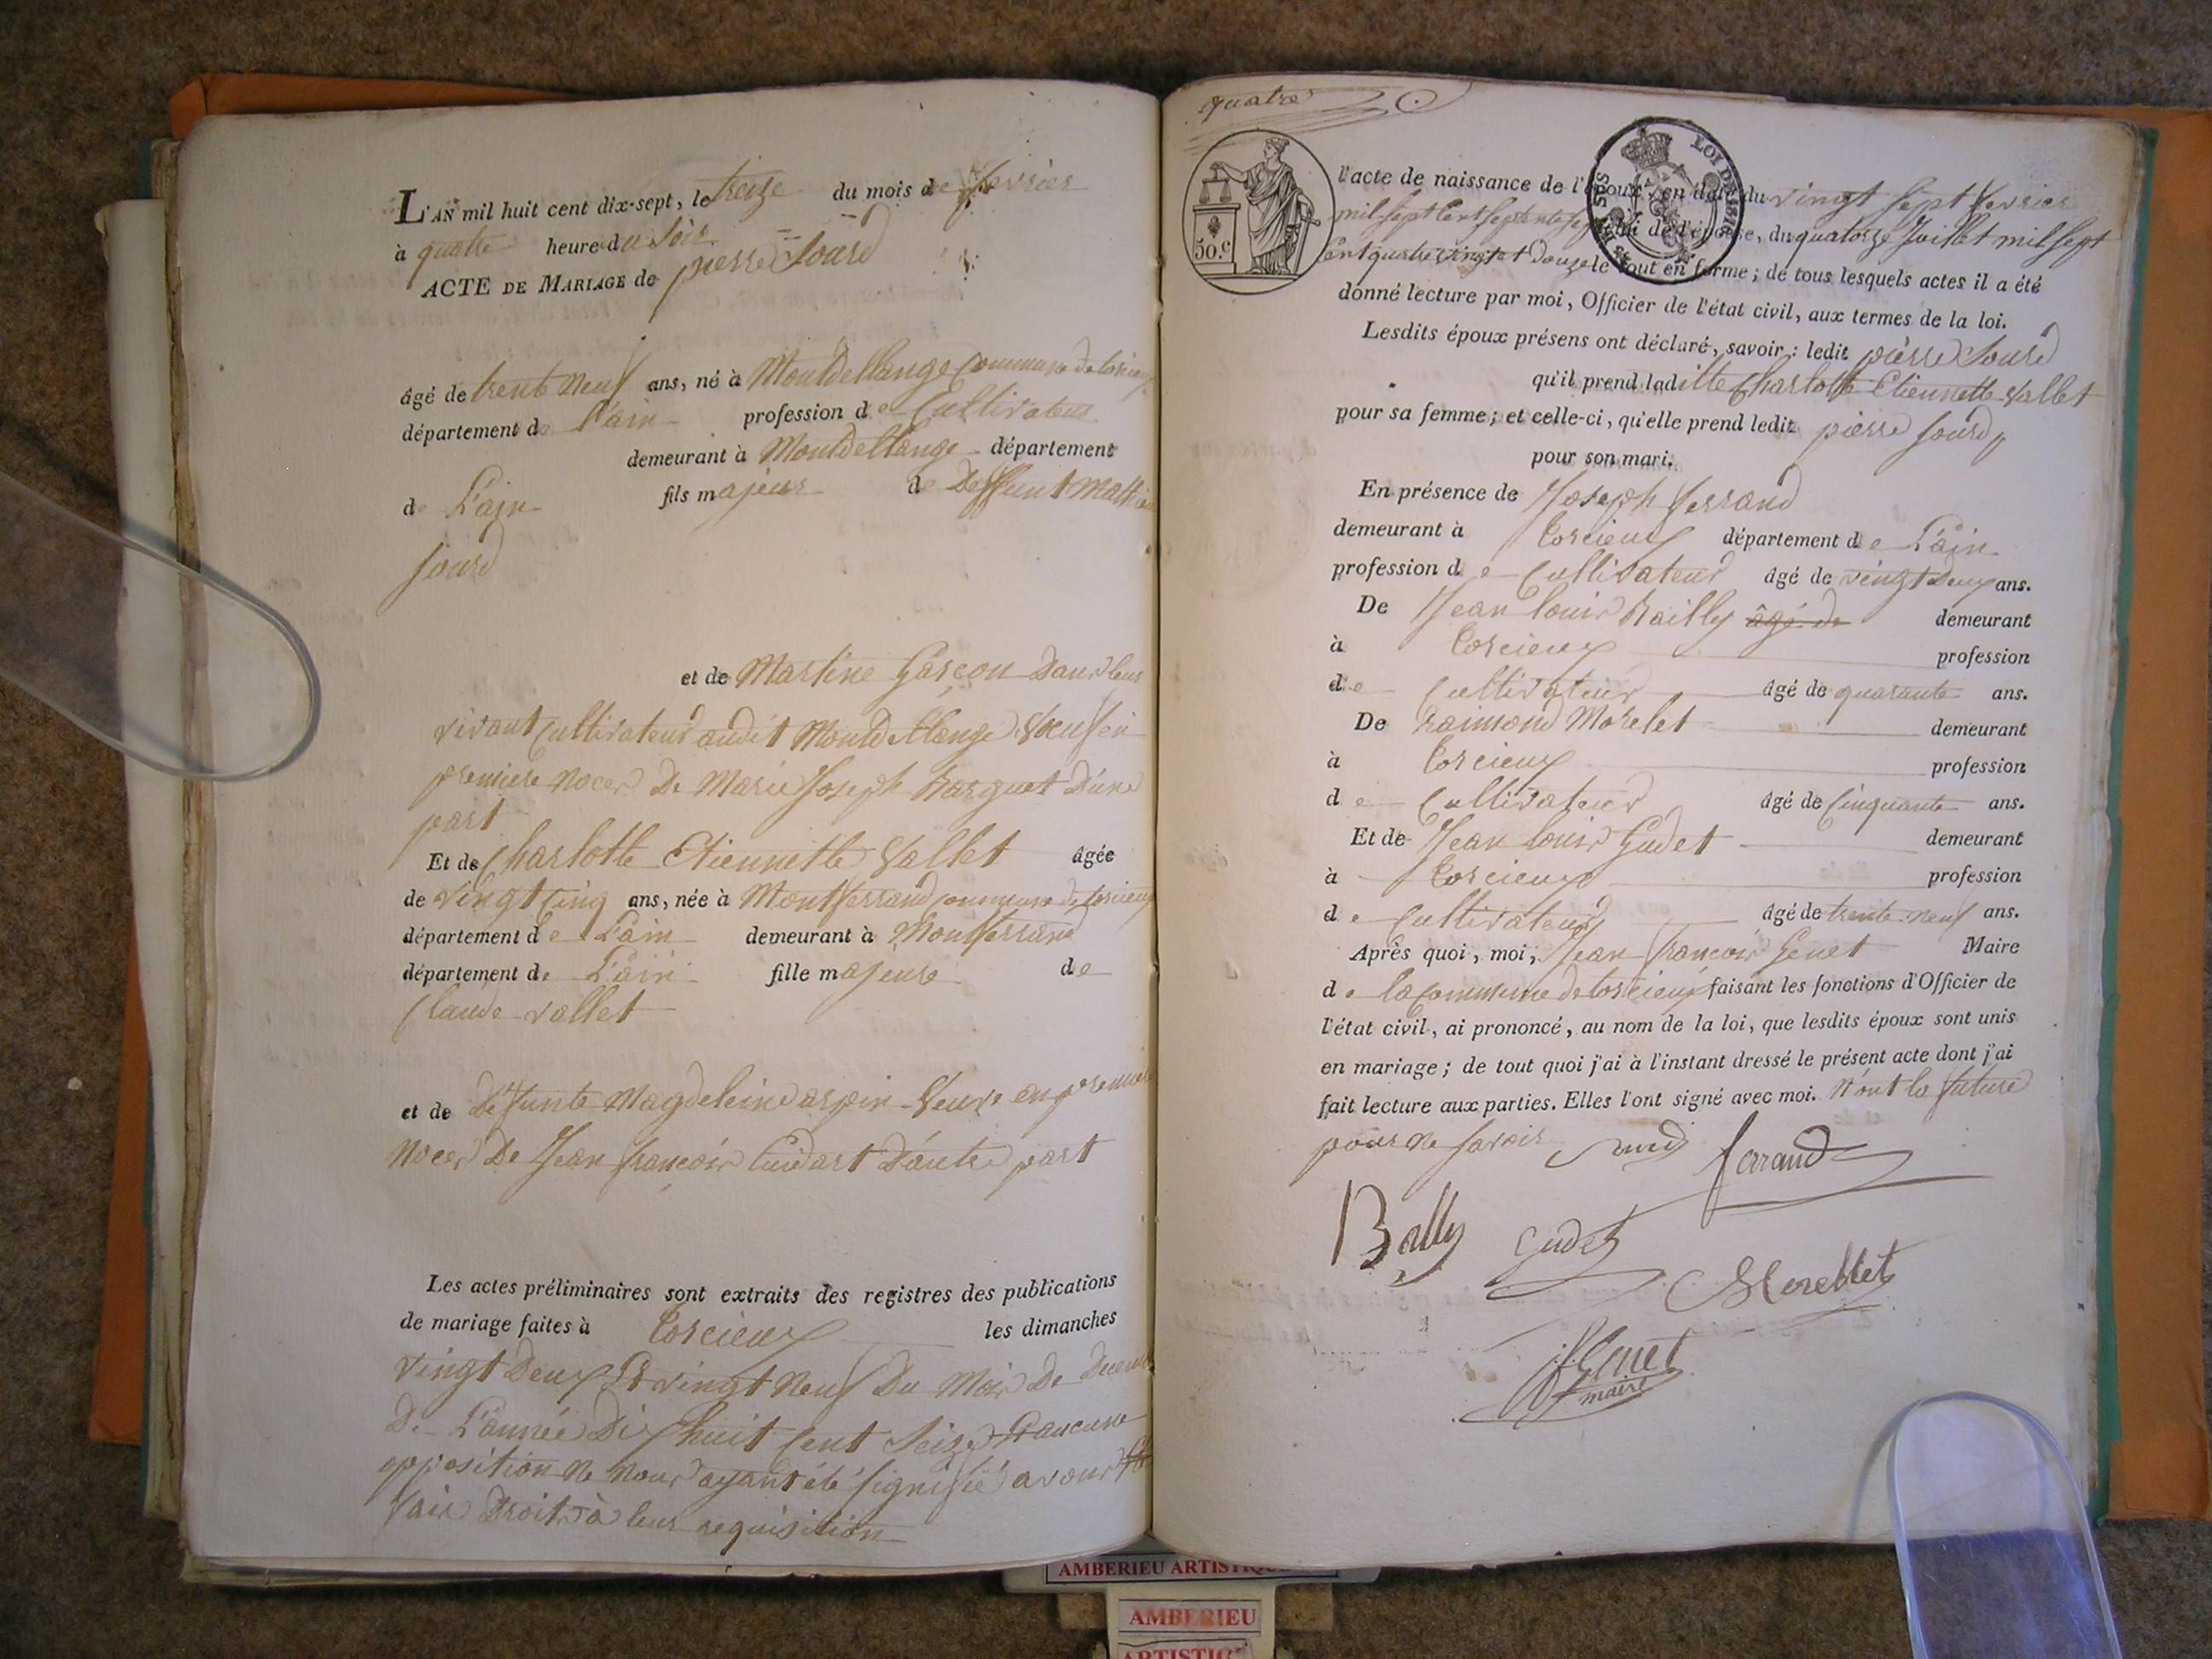 L'AN mil huit cent dix-sept, le treize du mois de fevrier
à quatre heure du Soir
ACTE DE MARIAGE de pierre Sourd
âgé de trente neuf ans, né à Montdellange Commune de torcieux
département de l'ain profession de Cultivateur
demeurant à Montdellange département
de L'ain fils majeur de Deffunt Mathieu
Sourd
et de Martine Garçon Dans leur
vivant Cultivateurs audit Montdellange Veuf en
premiere noces De Marie Joseph Barquet D'une
part
Et de Charlotte Etiennette Vallet âgée
de vingt Cinq ans, née à Montferrand commune de torcieux
département de L'ain demeurant à Montferrand
département de L'ain fille majeure de
Claude vallet
et de deffunte Magdeleine aspin Veuve en premiere
noces De Jean françois Cudart D'autre part
Les actes préliminaires sont extraits des registres des publications
de mariage faites à torcieux les dimanches
vingt Deux Et vingt neuf Du Mois De Decembre
De L'année Dix huit Cent Seize Et aucune
opposition ne nous ayant été signifié avons
fait Droit à leur requisition
quatre
50.c
LOI DE 1816
l'acte de naissance de l'époux, en date du vingt sept fevrier
mil sept Cent septante sept celui de l'épouse, du quatorze Juillet mil sept
Cent quatre vingt et Douze le tout en forme; de tous lesquels actes il a été
donné lecture par moi, Officier de l'état civil, aux termes de la loi.
Lesdits époux présens ont déclaré, savoir: ledit pierre Sourd
qu'il prend laditte Charlotte Etiennette Vallet
pour sa femme; et celle-ci, qu'elle prend ledit pierre Sourd
pour son mari.
En présence de Joseph ferrand
demeurant à torcieux département de L'ain
profession de Cultivateur âgé de vingt Deux ans.
De Jean louis Bailly âgé de demeurant
à torcieux profession
de Cultivateur âgé de quarante ans.
De Raimond Morelet demeurant
à torcieux profession
de Cultivateur âgé de Cinquante ans.
Et de Jean louis Gudet demeurant
à torcieux profession
de Cultivateur âgé de trente neuf ans.
Après quoi, moi, Jean françois Genet Maire
de la Commune de torcieux faisant les fonctions d'Officier de
l'état civil, ai prononcé, au nom de la loi, que lesdits époux sont unis
en mariage; de tout quoi j'ai à l'instant dressé le présent acte dont j'ai
fait lecture aux parties. Elles l'ont signé avec moi. N'ont la future
pour ne savoir ferrand
Bally Gudet
Morellet
jf Genet
maire
AMBERIEU ARTISTIQUE
AMBERIEU
ARTISTIQ